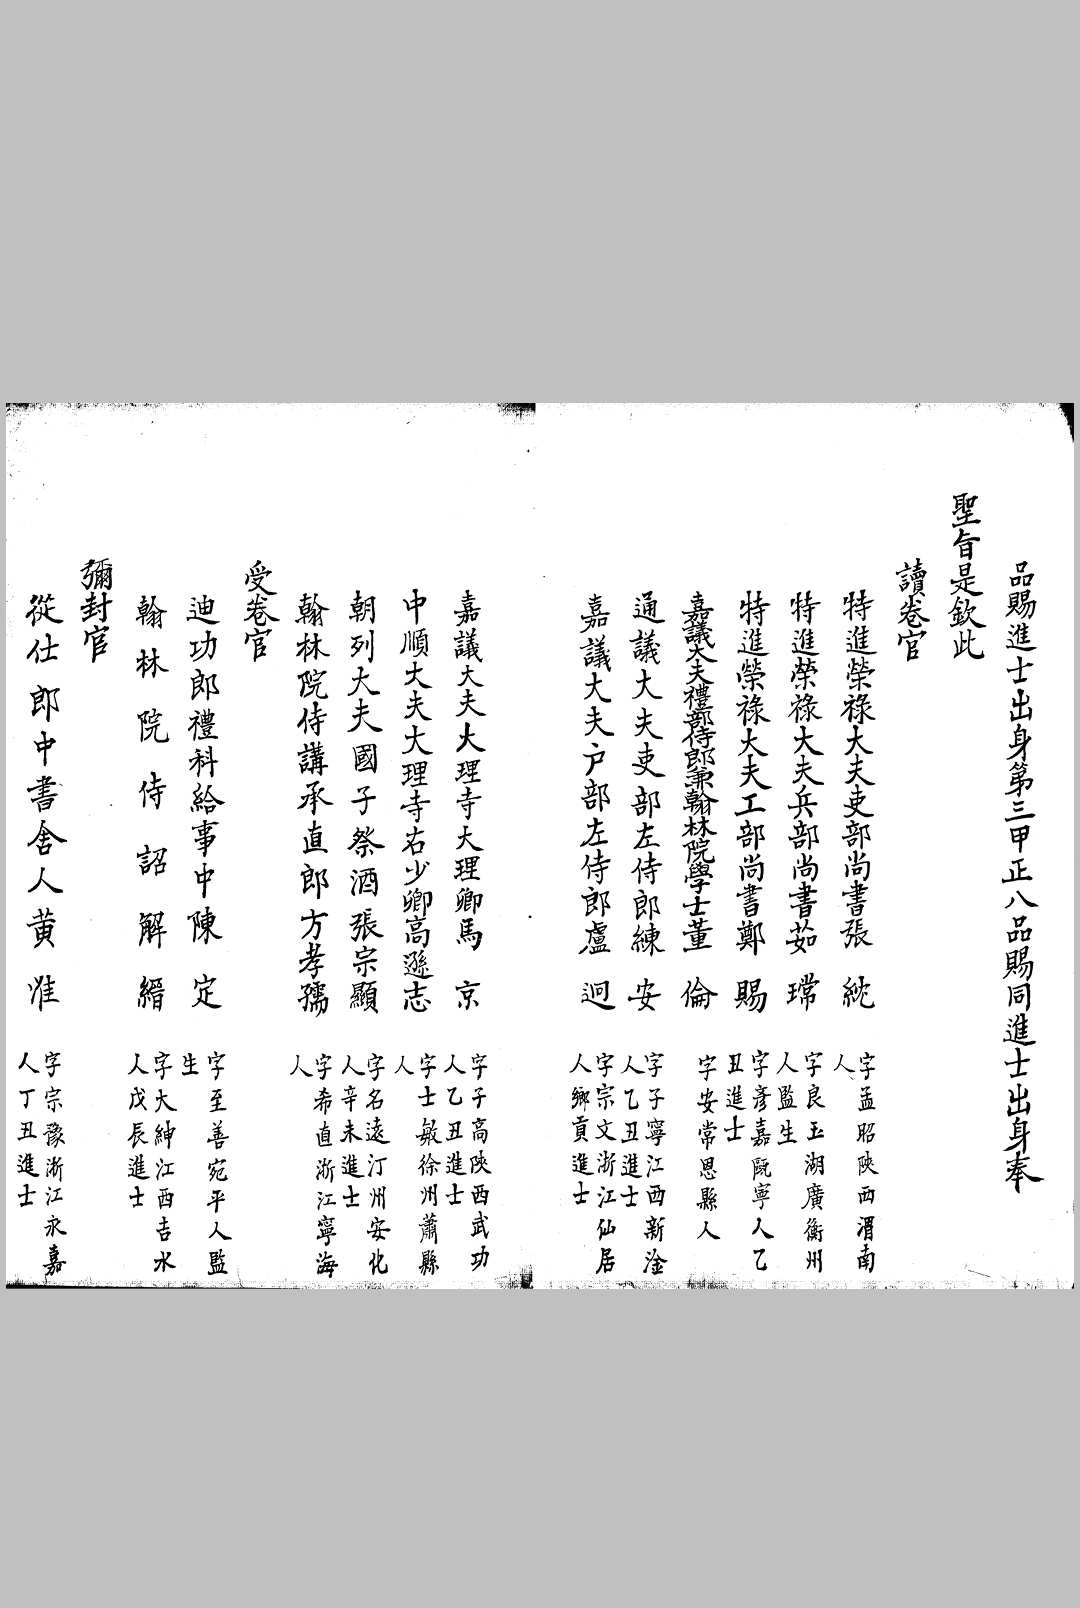 品賜進士出身第三甲正八品賜同進士出身奉
聖旨是欽此
讀卷官
特進榮祿大夫吏部尚書張紞
字孟昭陝西渭南
人
特進榮祿大夫兵部尚書茹瑺
字良玉湖廣衡州
人監生
特進榮祿大夫工部尚書鄭賜
字彥嘉甌寧人乙
丑進士
嘉議大夫禮部侍郎兼翰林院學士董倫
字安常恩縣人
通議大夫吏部左侍郎練安
字子寧江西新淦
人乙丑進士
嘉議大夫户部左侍郎盧迥
字宗文浙江仙居
人鄉貢進士
嘉議大夫大理寺大理卿馬京
字子高陝西武功
人乙丑進士
中順大夫大理寺右少卿高遜志
字士敏徐州蕭縣
人
朝列大夫國子祭酒張宗顯
字名遠汀州安化
人辛未進士
翰林院侍講承直郎方孝孺
字希直浙江寧海
人
受卷官
迪功郎禮科給事中陳定
字至善宛平人監
生
翰林院侍詔解縉
字大紳江西吉水
人戊辰進士
彌封官
從仕郎中書舍人黃淮
字宗豫浙江永嘉
人丁丑進士